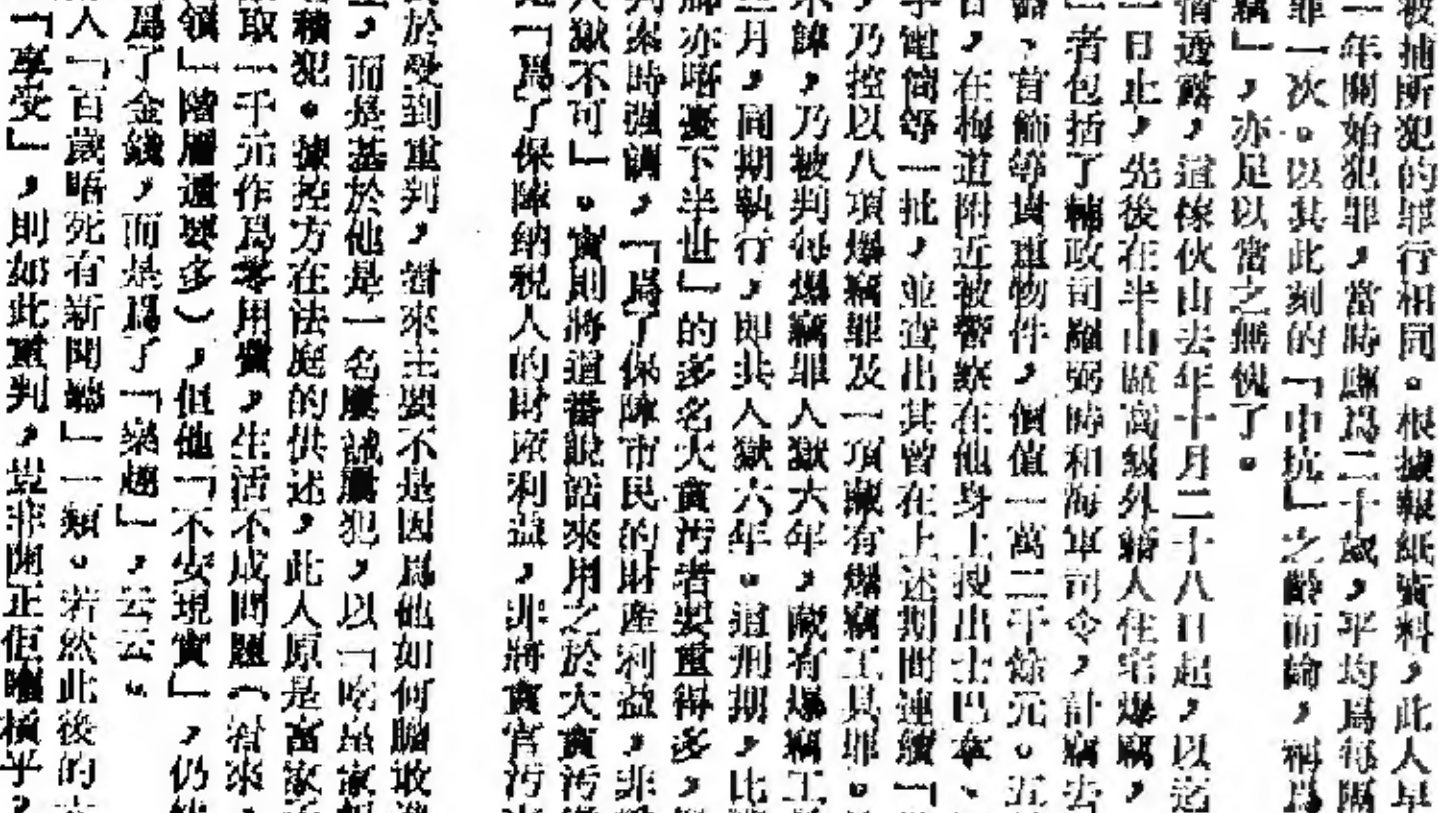 被捕所犯的罪行相同。根據報紙資料,此人早
一年開始犯罪,當時應爲二十歲,平均爲每隔
罪一次。以其此刻的「中坑」之齡而論,稱爲
竊」,亦足以當之無愧了。
情透露,這傢伙由去年十月二十八日起,以迄
一日止,先後在半山區高級外籍人住宅爆竊,
」者包括了輔政司羅弼時和海軍司令,計竊去
、首飾等貴重物件,價值一萬二千餘元。五
日,在梅道附近被警察在他身上搜出士巴拿、
手電筒等一批,並查出其曾在上述期間連續「
,乃控以八項爆竊罪及一項藏有爆竊工具罪。
不諱,乃被判每爆竊罪入獄六年,藏有爆竊工
月,同期執行,即共入獄六年。這刑期,比
亦唔憂下半世」的多名大貪污者要重得多,
判案時强調,「爲了保障市民的財產利益,非
入獄不可」。實則將這番說話來用之於大貪污
「爲了保障納稅人的財產利益,非將貪官污
於受到重判,看來主要不是因爲他如何膽敢
,而是基於他是一名屢誡屢犯,以「吃皇家
積犯。據控方在法庭的供述,此人原是富家
取一千元作爲零用費,生活不成問題(看來,
領」階層還要多),但他「不安現實」,仍
爲了金錢,而是爲了「樂趣」,云云。
人「百歲唔死有新聞聽」一類。若然此後的
「享受」,則如此重判,豈非開正佢嘅橫乎?